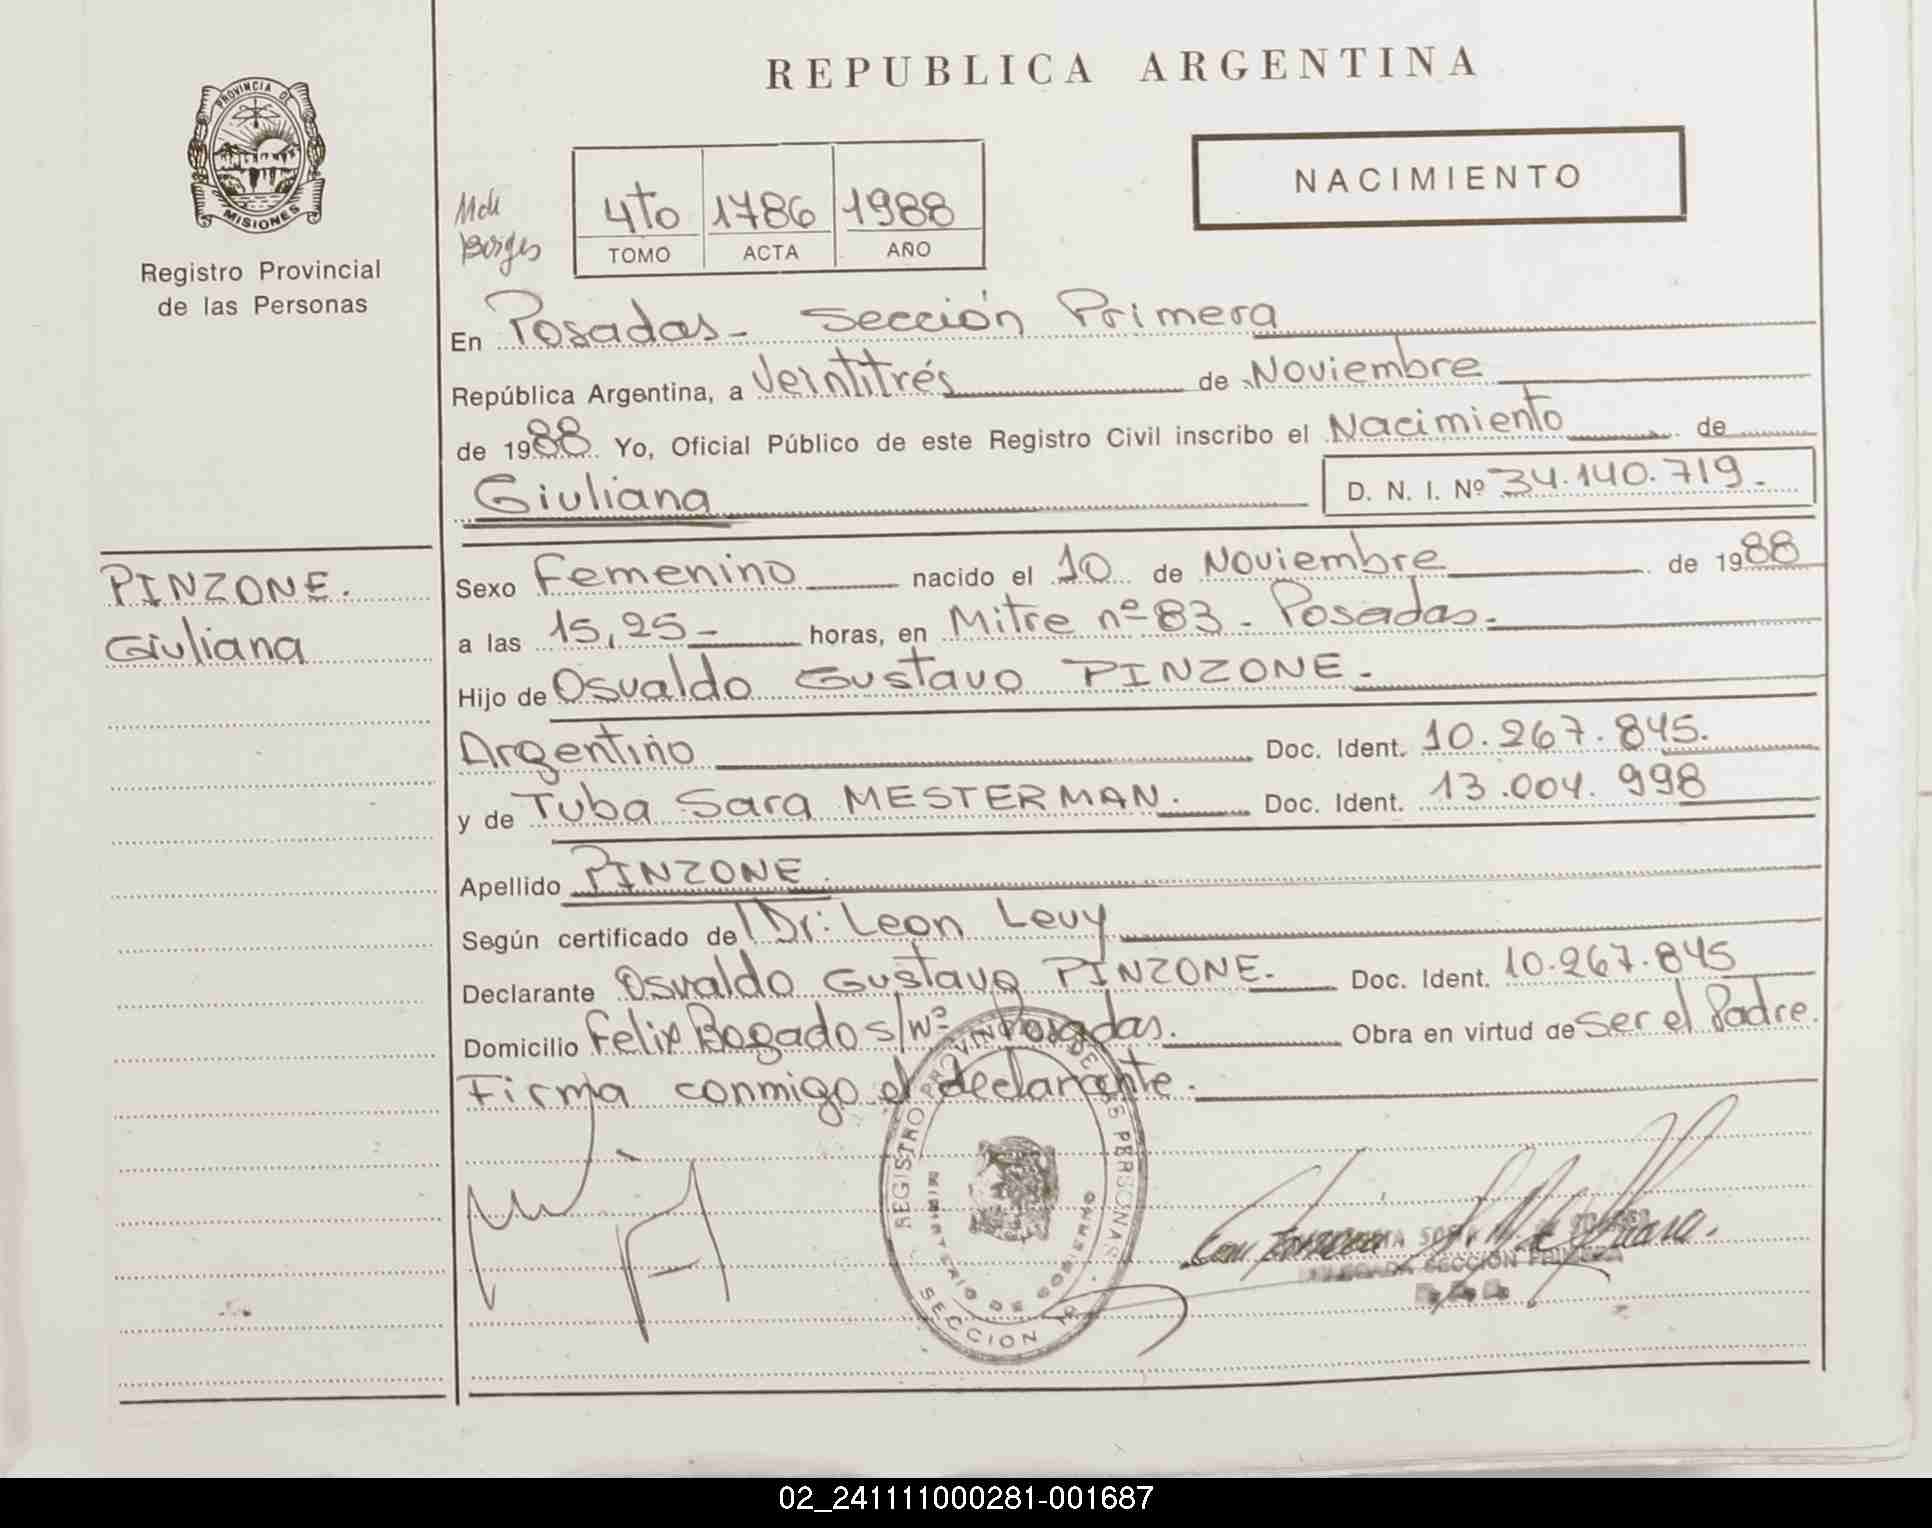 PROVINCIA DE
MISIONES
Registro Provincial
de las Personas
REPUBLICA ARGENTINA
NACIMIENTO
4to 1786 1988
TOMO ACTA AÑO
Borges
En Posadas - Sección Primera
República Argentina, a Veintitrés de Noviembre
de 1988 Yo, Oficial Público de este Registro Civil inscribo el Nacimiento de
Giuliana D. N. I. Nº 34.140.719.-
PINZONE.
Giuliana
Sexo Femenino nacido el 10 de Noviembre de 1988
a las 15,25- horas, en Mitre nº 83 - Posadas.
Hijo de Osvaldo Gustavo PINZONE.
Argentino Doc. Ident. 10.267.845.
y de Tuba Sara MESTERMAN. Doc. Ident. 13.004.998
Apellido PINZONE.
Según certificado de Dr: Leon Levy
Declarante Osvaldo Gustavo PINZONE. Doc. Ident. 10.267.845
Domicilio Felix Bogado s/nº Posadas. Obra en virtud de ser el Padre.
Firma conmigo el declarante.
REGISTRO PROVINCIAL DE LAS PERSONAS
MINISTERIO DE GOBIERNO
SECCION 1º
SECCION PRIMERA
02_241111000281-001687